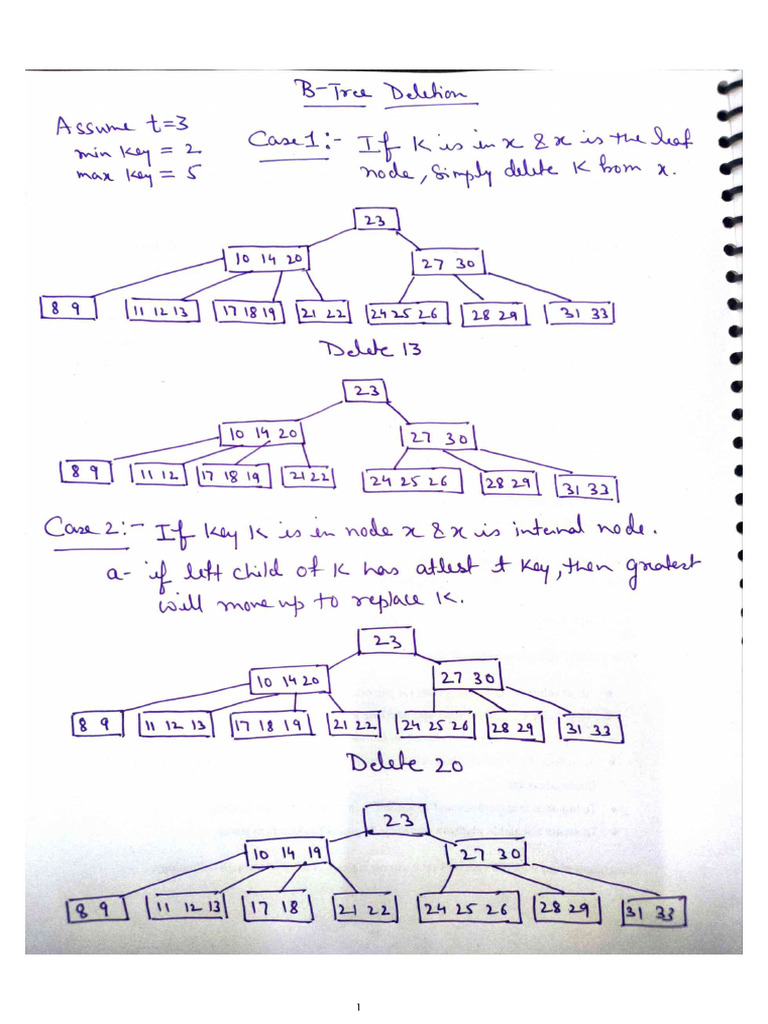 B-Tree Deletion
Assume t=3
min key = 2
max key = 5
Case 1:- If K is in x & x is the leaf
node, simply delete K from x.
23
10 14 20
27 30
8 9
11 12 13
17 18 19
21 22
24 25 26
28 29
31 33
Delete 13
23
10 14 20
27 30
8 9
11 12
17 18 19
21 22
24 25 26
28 29
31 33
Case 2:- If key K is in node x & x is internal node.
a- if left child of K has atlest t key, then greatest
will move up to replace K.
23
10 14 20
27 30
8 9
11 12 13
17 18 19
21 22
24 25 26
28 29
31 33
Delete 20
23
10 14 19
27 30
8 9
11 12 13
17 18
21 22
24 25 26
28 29
31 33
1